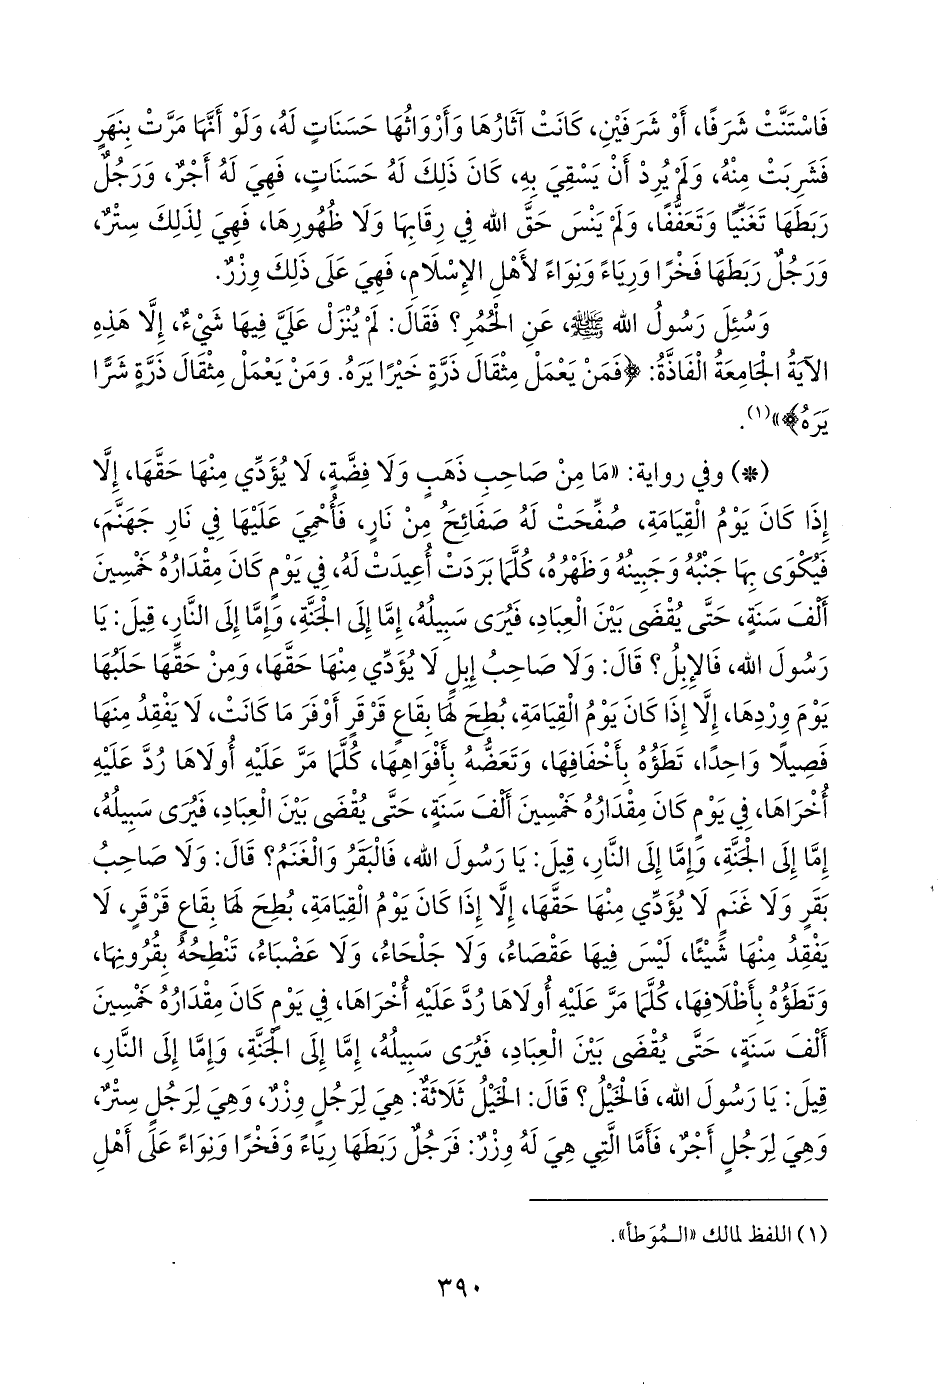 فَاسْتَنَّتْ شَرَفًا، أَوْ شَرَفَيْنِ، كَانَتْ آثَارُهَا وَأَرْوَاثُهَا حَسَنَاتٍ لَهُ، وَلَوْ أَنَّهَا مَرَّتْ بِنَهَرٍ
فَشَرِبَتْ مِنْهُ، وَلَمْ يُرِدْ أَنْ يَسْقِيَ بِهِ، كَانَ ذَلِكَ لَهُ حَسَنَاتٍ، فَهِيَ لَهُ أَجْرٌ، وَرَجُلٌ
رَبَطَهَا تَغَنِّيًا وَتَعَفُّفًا، وَلَمْ يَنْسَ حَقَّ الله فِي رِقَابِهَا وَلَا ظُهُورِهَا، فَهِيَ لِذَلِكَ سِتْرٌ،
وَرَجُلٌ رَبَطَهَا فَخْرًا وَرِيَاءً وَنِوَاءً لأَهْلِ الإِسْلَامِ، فَهِيَ عَلَى ذَلِكَ وِزْرٌ.
وَسُئِلَ رَسُولُ الله ﷺ، عَنِ الْحُمُرِ؟ فَقَالَ: لَمْ يُنْزَلْ عَلَيَّ فِيهَا شَيْءٌ، إِلَّا هَذِهِ
الآيَةُ الْجَامِعَةُ الْفَاذَّةُ: ﴿فَمَنْ يَعْمَلْ مِثْقَالَ ذَرَّةٍ خَيْرًا يَرَهُ. وَمَنْ يَعْمَلْ مِثْقَالَ ذَرَّةٍ شَرًّا
يَرَهُ﴾»(١).
(*) وفي رواية: «مَا مِنْ صَاحِبِ ذَهَبٍ وَلَا فِضَّةٍ، لَا يُؤَدِّي مِنْهَا حَقَّهَا، إِلَّا
إِذَا كَانَ يَوْمُ الْقِيَامَةِ، صُفِّحَتْ لَهُ صَفَائِحُ مِنْ نَارٍ، فَأُحْمِيَ عَلَيْهَا فِي نَارِ جَهَنَّمَ،
فَيُكْوَى بِهَا جَنْبُهُ وَجَبِينُهُ وَظَهْرُهُ، كُلَّمَا بَرَدَتْ أُعِيدَتْ لَهُ، فِي يَوْمٍ كَانَ مِقْدَارُهُ خَمْسِينَ
أَلْفَ سَنَةٍ، حَتَّى يُقْضَى بَيْنَ الْعِبَادِ، فَيُرَى سَبِيلُهُ، إِمَّا إِلَى الْجَنَّةِ، وَإِمَّا إِلَى النَّارِ، قِيلَ: يَا
رَسُولَ الله، فَالإِبِلُ؟ قَالَ: وَلَا صَاحِبُ إِبِلٍ لَا يُؤَدِّي مِنْهَا حَقَّهَا، وَمِنْ حَقِّهَا حَلَبُهَا
يَوْمَ وِرْدِهَا، إِلَّا إِذَا كَانَ يَوْمُ الْقِيَامَةِ، بُطِحَ لَهَا بِقَاعٍ قَرْقَرٍ أَوْفَرَ مَا كَانَتْ، لَا يَفْقِدُ مِنْهَا
فَصِيلًا وَاحِدًا، تَطَؤُهُ بِأَخْفَافِهَا، وَتَعَضُّهُ بِأَفْوَاهِهَا، كُلَّمَا مَرَّ عَلَيْهِ أُولَاهَا رُدَّ عَلَيْهِ
أُخْرَاهَا، فِي يَوْمٍ كَانَ مِقْدَارُهُ خَمْسِينَ أَلْفَ سَنَةٍ، حَتَّى يُقْضَى بَيْنَ الْعِبَادِ، فَيُرَى سَبِيلُهُ،
إِمَّا إِلَى الْجَنَّةِ، وَإِمَّا إِلَى النَّارِ، قِيلَ: يَا رَسُولَ الله، فَالْبَقَرُ وَالْغَنَمُ؟ قَالَ: وَلَا صَاحِبُ
بَقَرٍ وَلَا غَنَمٍ لَا يُؤَدِّي مِنْهَا حَقَّهَا، إِلَّا إِذَا كَانَ يَوْمُ الْقِيَامَةِ، بُطِحَ لَهَا بِقَاعٍ قَرْقَرٍ، لَا
يَفْقِدُ مِنْهَا شَيْئًا، لَيْسَ فِيهَا عَقْصَاءُ، وَلَا جَلْحَاءُ، وَلَا عَضْبَاءُ، تَنْطِحُهُ بِقُرُونِهَا،
وَتَطَؤُهُ بِأَظْلَافِهَا، كُلَّمَا مَرَّ عَلَيْهِ أُولَاهَا رُدَّ عَلَيْهِ أُخْرَاهَا، فِي يَوْمٍ كَانَ مِقْدَارُهُ خَمْسِينَ
أَلْفَ سَنَةٍ، حَتَّى يُقْضَى بَيْنَ الْعِبَادِ، فَيُرَى سَبِيلُهُ، إِمَّا إِلَى الْجَنَّةِ، وَإِمَّا إِلَى النَّارِ،
قِيلَ: يَا رَسُولَ الله، فَالْخَيْلُ؟ قَالَ: الْخَيْلُ ثَلَاثَةٌ: هِيَ لِرَجُلٍ وِزْرٌ، وَهِيَ لِرَجُلٍ سِتْرٌ،
وَهِيَ لِرَجُلٍ أَجْرٌ، فَأَمَّا الَّتِي هِيَ لَهُ وِزْرٌ: فَرَجُلٌ رَبَطَهَا رِيَاءً وَفَخْرًا وَنِوَاءً عَلَى أَهْلِ
(١) اللفظ لمالك «المُوَطأ».
٣٩٠